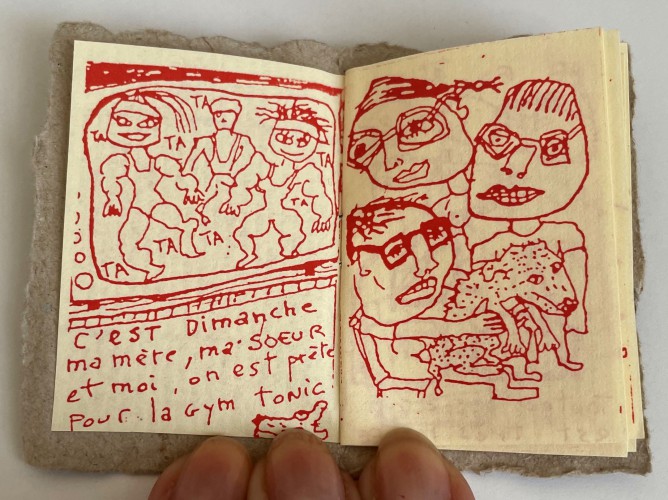 TA
TA
TA
TA
TA
TA
TA
TA
C'EST Dimanche
ma mère, ma SOEUR
et moi, on est prête
pour la Gym TONIC